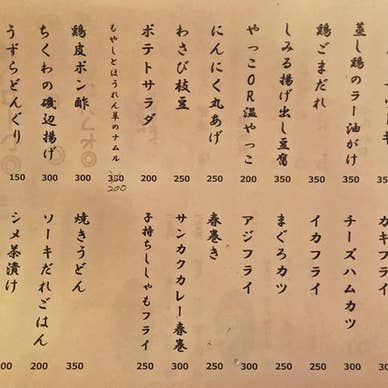 蒸し鶏のラー油がけ
350
鶏ごまだれ
350
しみる揚げ出し豆腐
350
やっこOR温やっこ
200
にんにく丸あげ
250
わさび枝豆
250
ポテトサラダ
200
もやしとほうれん草のナムル
350
200
鶏皮ポン酢
300
ちくわの磯辺揚げ
300
うずらどんぐり
150
カキフライ
チーズハムカツ
300
イカフライ
250
まぐろカツ
250
アジフライ
300
春巻き
250
サンカクカレー春巻
300
子持ちししゃもフライ
250
焼きうどん
350
ソーキだれごはん
200
シメ茶漬け